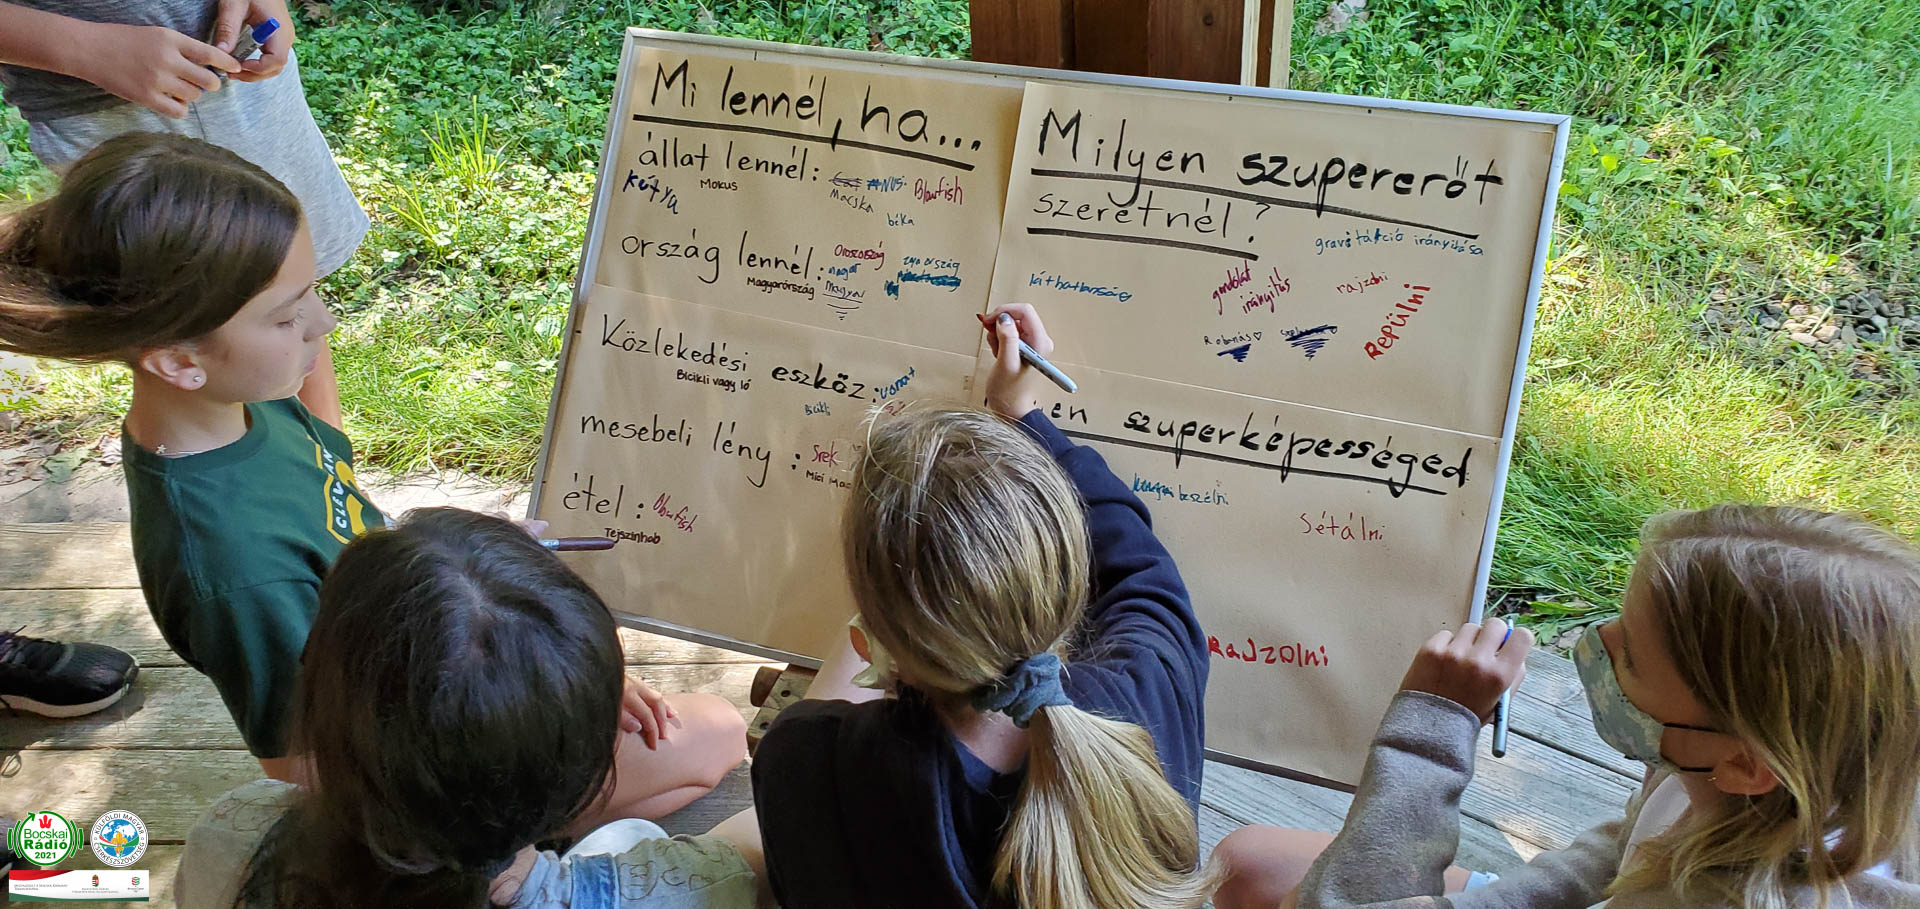 Mi lennél, ha...
állat lennél:
Mokus
Macska
NYUSZI
Blowfish
béka
ország lennél:
Oroszország
Magyarország
magyar
Magyar
Közlekedési eszköz:
vonat
Bicikli vagy ló
Bicikli
mesebeli lény:
Srek
Mici Mac
étel:
Blowfish
Tejszínhab
Milyen szupererőt
szeretnél?
gravitáció irányitása
láthatlanság
gondolat
irányitás
rajzolni
Repülni
Robanás
en szuperképességed
beszélni
Sétálni
RaJzOlni
CLEVELAN
Bocskai
Rádió
2021
KÜLFÖLDI MAGYAR
CSERKÉSZSZÖVETSÉG